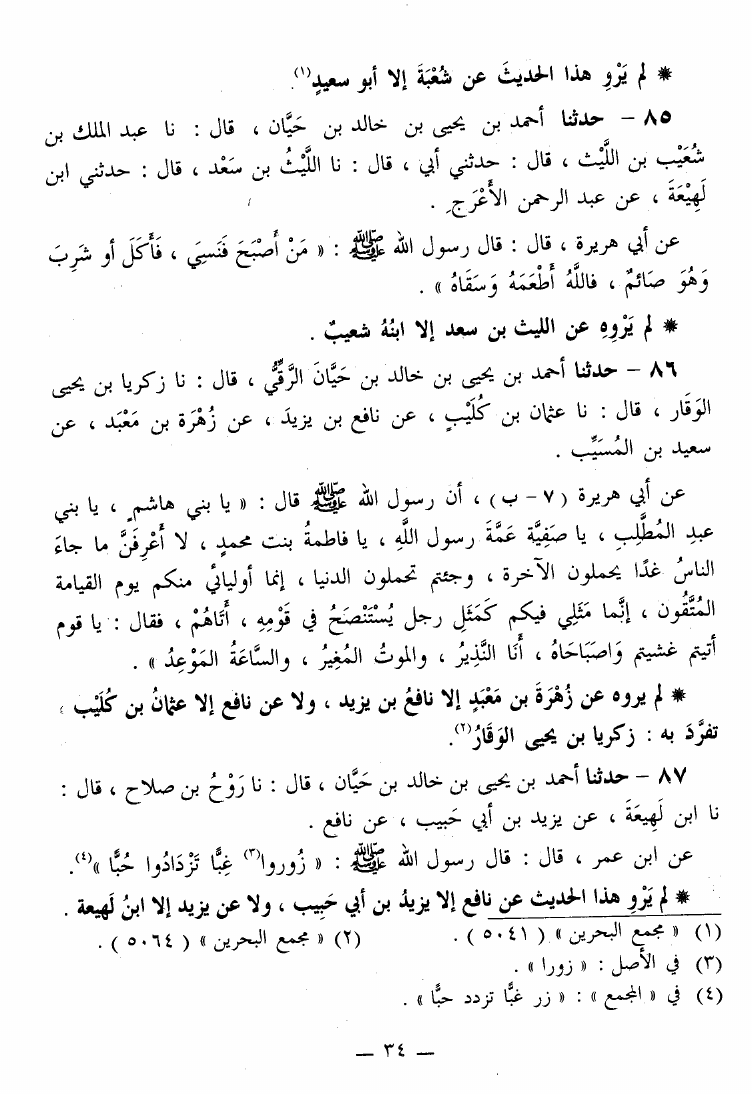 * لم يَرْوِ هذا الحديثَ عن شُعْبَةَ إلا أبو سعيدٍ(١).
٨٥ – حدثنا أحمد بن يحيى بن خالد بن حَيَّان ، قال : نا عبد الملك بن
شُعَيْب بن اللَّيْث ، قال : حدثني أبي ، قال : نا اللَّيْثُ بن سَعْد ، قال : حدثني ابن
لَهِيْعَةَ ، عن عبد الرحمن الأَعْرَجِ .
عن أبي هريرة ، قال : قال رسول الله ﷺ : « مَنْ أَصْبَحَ فَنَسِيَ ، فَأَكَلَ أو شَرِبَ
وَهُوَ صَائمٌ ، فاللَّهُ أَطْعَمَهُ وَسَقَاهُ » .
* لم يَرْوِهِ عن الليث بن سعد إلا ابنُهُ شعيبٌ .
٨٦ – حدثنا أحمد بن يحيى بن خالد بن حَيَّانَ الرَّقِّيُّ ، قال : نا زكريا بن يحيى
الوَقَار ، قال : نا عثمان بن كُلَيْبٍ ، عن نافع بن يزيدَ ، عن زُهْرَة بن مَعْبَد ، عن
سعيد بن المُسَيِّب .
عن أبي هريرة ( ٧ – ب ) ، أن رسول الله ﷺ قال : « يا بني هاشمٍ ، يا بني
عبدِ المُطَّلِبِ ، يا صَفِيَّة عَمَّةَ رسول اللَّهِ ، يا فاطمةُ بنت محمدٍ ، لا أَعْرِفَنَّ ما جاءَ
الناسُ غدًا يحملون الآخرة ، وجئتم تحملون الدنيا ، إنما أوليائي منكم يوم القيامة
المُتَّقُون ، إنَّما مَثَلِي فيكم كَمَثَلِ رجل يُسْتَنْصَحُ في قَوْمِهِ ، أَتَاهُمْ ، فقال : يا قوم
أتيتم غشيتم وَاصَبَاحَاهُ ، أَنَا النَّذِيرُ ، والموتُ المُغِيرُ ، والسَّاعَةُ المَوْعِدُ » .
* لم يروه عن زُهْرَةَ بن مَعْبَدٍ إلا نافعُ بن يزيد ، ولا عن نافع إلا عثمانُ بن كُلَيْب ،
تفرَّدَ به : زكريا بن يحيى الوَقَارُ(٢).
٨٧ – حدثنا أحمد بن يحيى بن خالد بن حَيَّان ، قال : نا رَوْحُ بن صلاح ، قال :
نا ابن لَهِيعَةَ ، عن يزيد بن أبي حَبيب ، عن نافع .
عن ابن عمر ، قال : قال رسول الله ﷺ : « زُوروا(٣) غِبًّا تَزْدَادُوا حُبًّا »(٤).
* لم يَرْوِ هذا الحديث عن نافع إلا يزيدُ بن أبي حَبِيب ، ولا عن يزيد إلا ابنُ لَهيعة .
(١) « مجمع البحرين » ( ٥٠٤١ ) . (٢) « مجمع البحرين » ( ٥٠٦٤ ) .
(٣) في الأصل : « زورا » .
(٤) في « المجمع » : « زر غبًّا تزدد حبًّا » .
— ٣٤ —